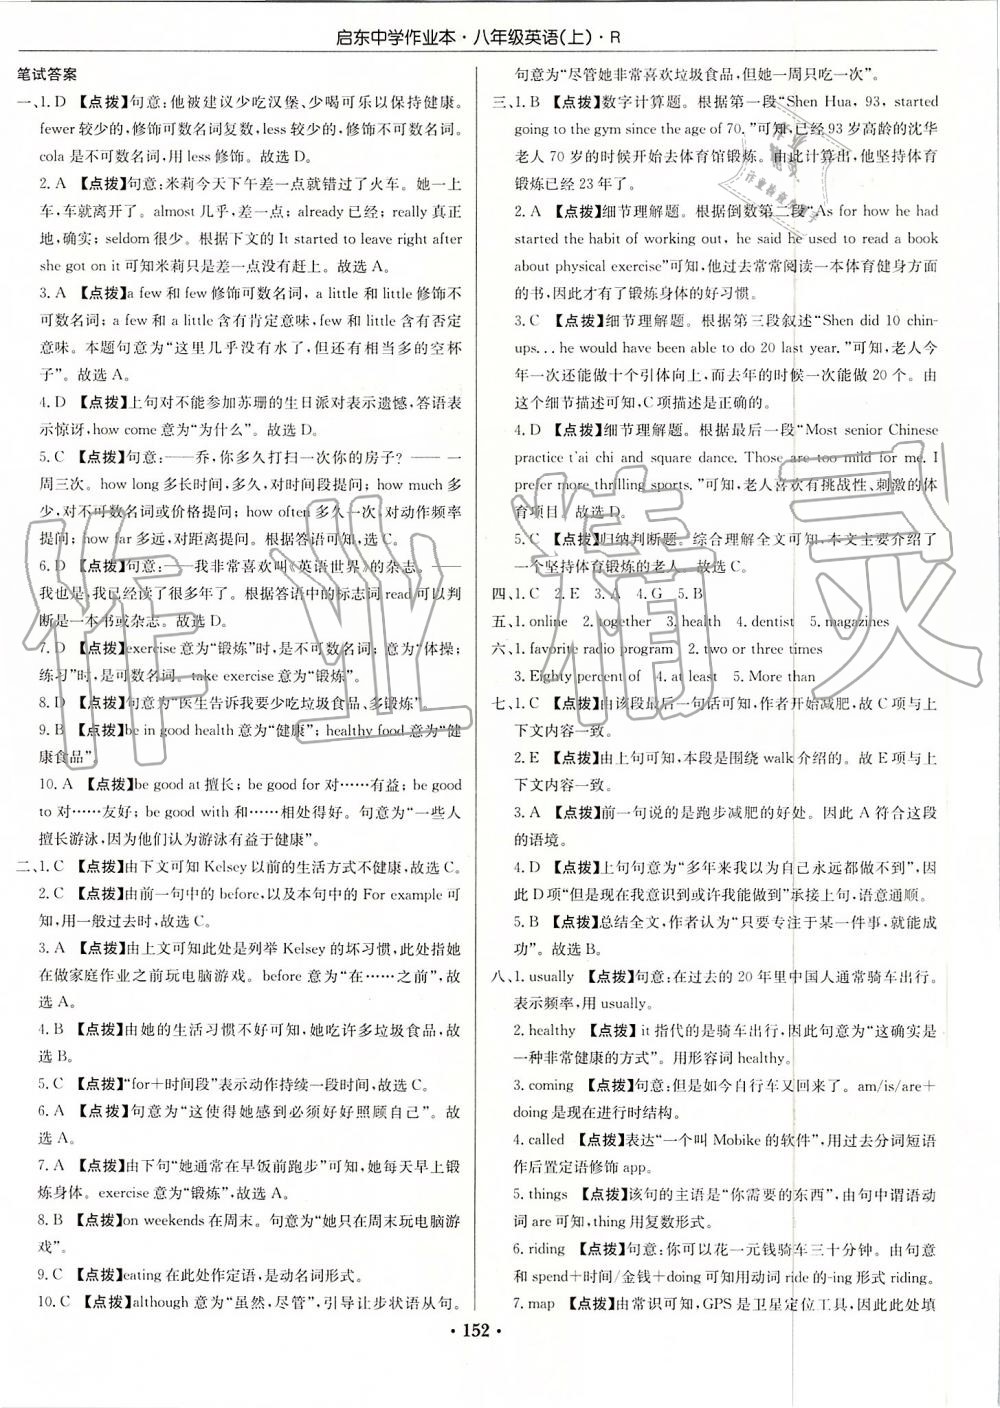 启东中学作业本·八年级英语(上)·R
笔试答案
一、1. D 【点拨】句意:他被建议少吃汉堡、少喝可乐以保持健康。
fewer 较少的,修饰可数名词复数,less 较少的,修饰不可数名词。
cola 是不可数名词,用 less 修饰。故选 D。
2. A 【点拨】句意:米莉今天下午差一点就错过了火车。她一上
车,车就离开了。almost 几乎,差一点;already 已经;really 真正
地,确实;seldom 很少。根据下文的 It started to leave right after
she got on it 可知米莉只是差一点没有赶上。故选 A。
3. A 【点拨】a few 和 few 修饰可数名词,a little 和 little 修饰不
可数名词;a few 和 a little 含有肯定意味,few 和 little 含有否定
意味。本题句意为“这里几乎没有水了,但还有相当多的空杯
子”。故选 A。
4. D 【点拨】上句对不能参加苏珊的生日派对表示遗憾,答语表
示惊讶,how come 意为“为什么”。故选 D。
5. C 【点拨】句意:——乔,你多久打扫一次你的房子? —— 一
周三次。how long 多长时间,多久,对时间提问;how much 多
少,对不可数名词或价格提问;how often 多久一次,对动作频率
提问;how far 多远,对距离提问。根据答语可知,选 C。
6. D 【点拨】句意:——我非常喜欢叫《英语世界》的杂志。——
我也是,我已经读了很多年了。根据答语中的标志词 read 可以判
断是一本书或杂志。故选 D。
7. D 【点拨】exercise 意为“锻炼”时,是不可数名词;意为“体操;
练习”时,是可数名词。take exercise 意为“锻炼”。
8. D 【点拨】句意为“医生告诉我要少吃垃圾食品、多锻炼”。
9. B 【点拨】be in good health 意为“健康”;healthy food 意为“健
康食品”。
10. A 【点拨】be good at 擅长;be good for 对……有益;be good
to 对……友好;be good with 和……相处得好。句意为“一些人
擅长游泳,因为他们认为游泳有益于健康”。
二、1. C 【点拨】由下文可知 Kelsey 以前的生活方式不健康,故选 C。
2. C 【点拨】由前一句中的 before,以及本句中的 For example 可
知,用一般过去时,故选 C。
3. A 【点拨】由上文可知此处是列举 Kelsey 的坏习惯,此处指她
在做家庭作业之前玩电脑游戏。before 意为“在……之前”,故
选 A。
4. B 【点拨】由她的生活习惯不好可知,她吃许多垃圾食品,故
选 B。
5. C 【点拨】“for+时间段”表示动作持续一段时间,故选 C。
6. A 【点拨】句意为“这使得她感到必须好好照顾自己”。故
选 A。
7. A 【点拨】由下句“她通常在早饭前跑步”可知,她每天早上锻
炼身体。exercise 意为“锻炼”,故选 A。
8. B 【点拨】on weekends 在周末。句意为“她只在周末玩电脑游
戏”。
9. C 【点拨】eating 在此处作定语,是动名词形式。
10. C 【点拨】although 意为“虽然,尽管”,引导让步状语从句。
句意为“尽管她非常喜欢垃圾食品,但她一周只吃一次”。
三、1. B 【点拨】数字计算题。根据第一段“Shen Hua, 93, started
going to the gym since the age of 70. ”可知,已经 93 岁高龄的沈华
老人 70 岁的时候开始去体育馆锻炼。由此计算出,他坚持体育
锻炼已经 23 年了。
2. A 【点拨】细节理解题。根据倒数第二段“As for how he had
started the habit of working out, he said he used to read a book
about physical exercise”可知,他过去常常阅读一本体育健身方面
的书,因此才有了锻炼身体的好习惯。
3. C 【点拨】细节理解题。根据第三段叙述“Shen did 10 chin-
ups. . . he would have been able to do 20 last year. ”可知,老人今
年一次还能做十个引体向上,而去年的时候一次能做 20 个。由
这个细节描述可知,C 项描述是正确的。
4. D 【点拨】细节理解题。根据最后一段“Most senior Chinese
practice t'ai chi and square dance. Those are too mild for me. I
prefer more thrilling sports. ”可知,老人喜欢有挑战性、刺激的体
育项目。故选 D。
5. C 【点拨】归纳判断题。综合理解全文可知,本文主要介绍了
一个坚持体育锻炼的老人。故选 C。
四、1. C 2. E 3. A 4. G 5. B
五、1. online 2. together 3. health 4. dentist 5. magazines
六、1. favorite radio program 2. two or three times
3. Eighty percent of 4. at least 5. More than
七、1. C 【点拨】由该段最后一句话可知,作者开始减肥,故 C 项与上
下文内容一致。
2. E 【点拨】由上句可知,本段是围绕 walk 介绍的。故 E 项与上
下文内容一致。
3. A 【点拨】前一句说的是跑步减肥的好处。因此 A 符合这段
的语境。
4. D 【点拨】上句句意为“多年来我以为自己永远都做不到”,因
此 D 项“但是现在我意识到或许我能做到”承接上句,语意通顺。
5. B 【点拨】总结全文,作者认为“只要专注于某一件事,就能成
功”。故选 B。
八、1. usually 【点拨】句意:在过去的 20 年里中国人通常骑车出行。
表示频率,用 usually。
2. healthy 【点拨】it 指代的是骑车出行,因此句意为“这确实是
一种非常健康的方式”。用形容词 healthy。
3. coming 【点拨】句意:但是如今自行车又回来了。am/is/are+
doing 是现在进行时结构。
4. called 【点拨】表达“一个叫 Mobike 的软件”,用过去分词短语
作后置定语修饰 app。
5. things 【点拨】该句的主语是“你需要的东西”,由句中谓语动
词 are 可知,thing 用复数形式。
6. riding 【点拨】句意:你可以花一元钱骑车三十分钟。由句意
和 spend+时间/金钱+doing 可知用动词 ride 的-ing 形式 riding。
7. map 【点拨】由常识可知,GPS 是卫星定位工具,因此此处填
· 152 ·
作业精灵